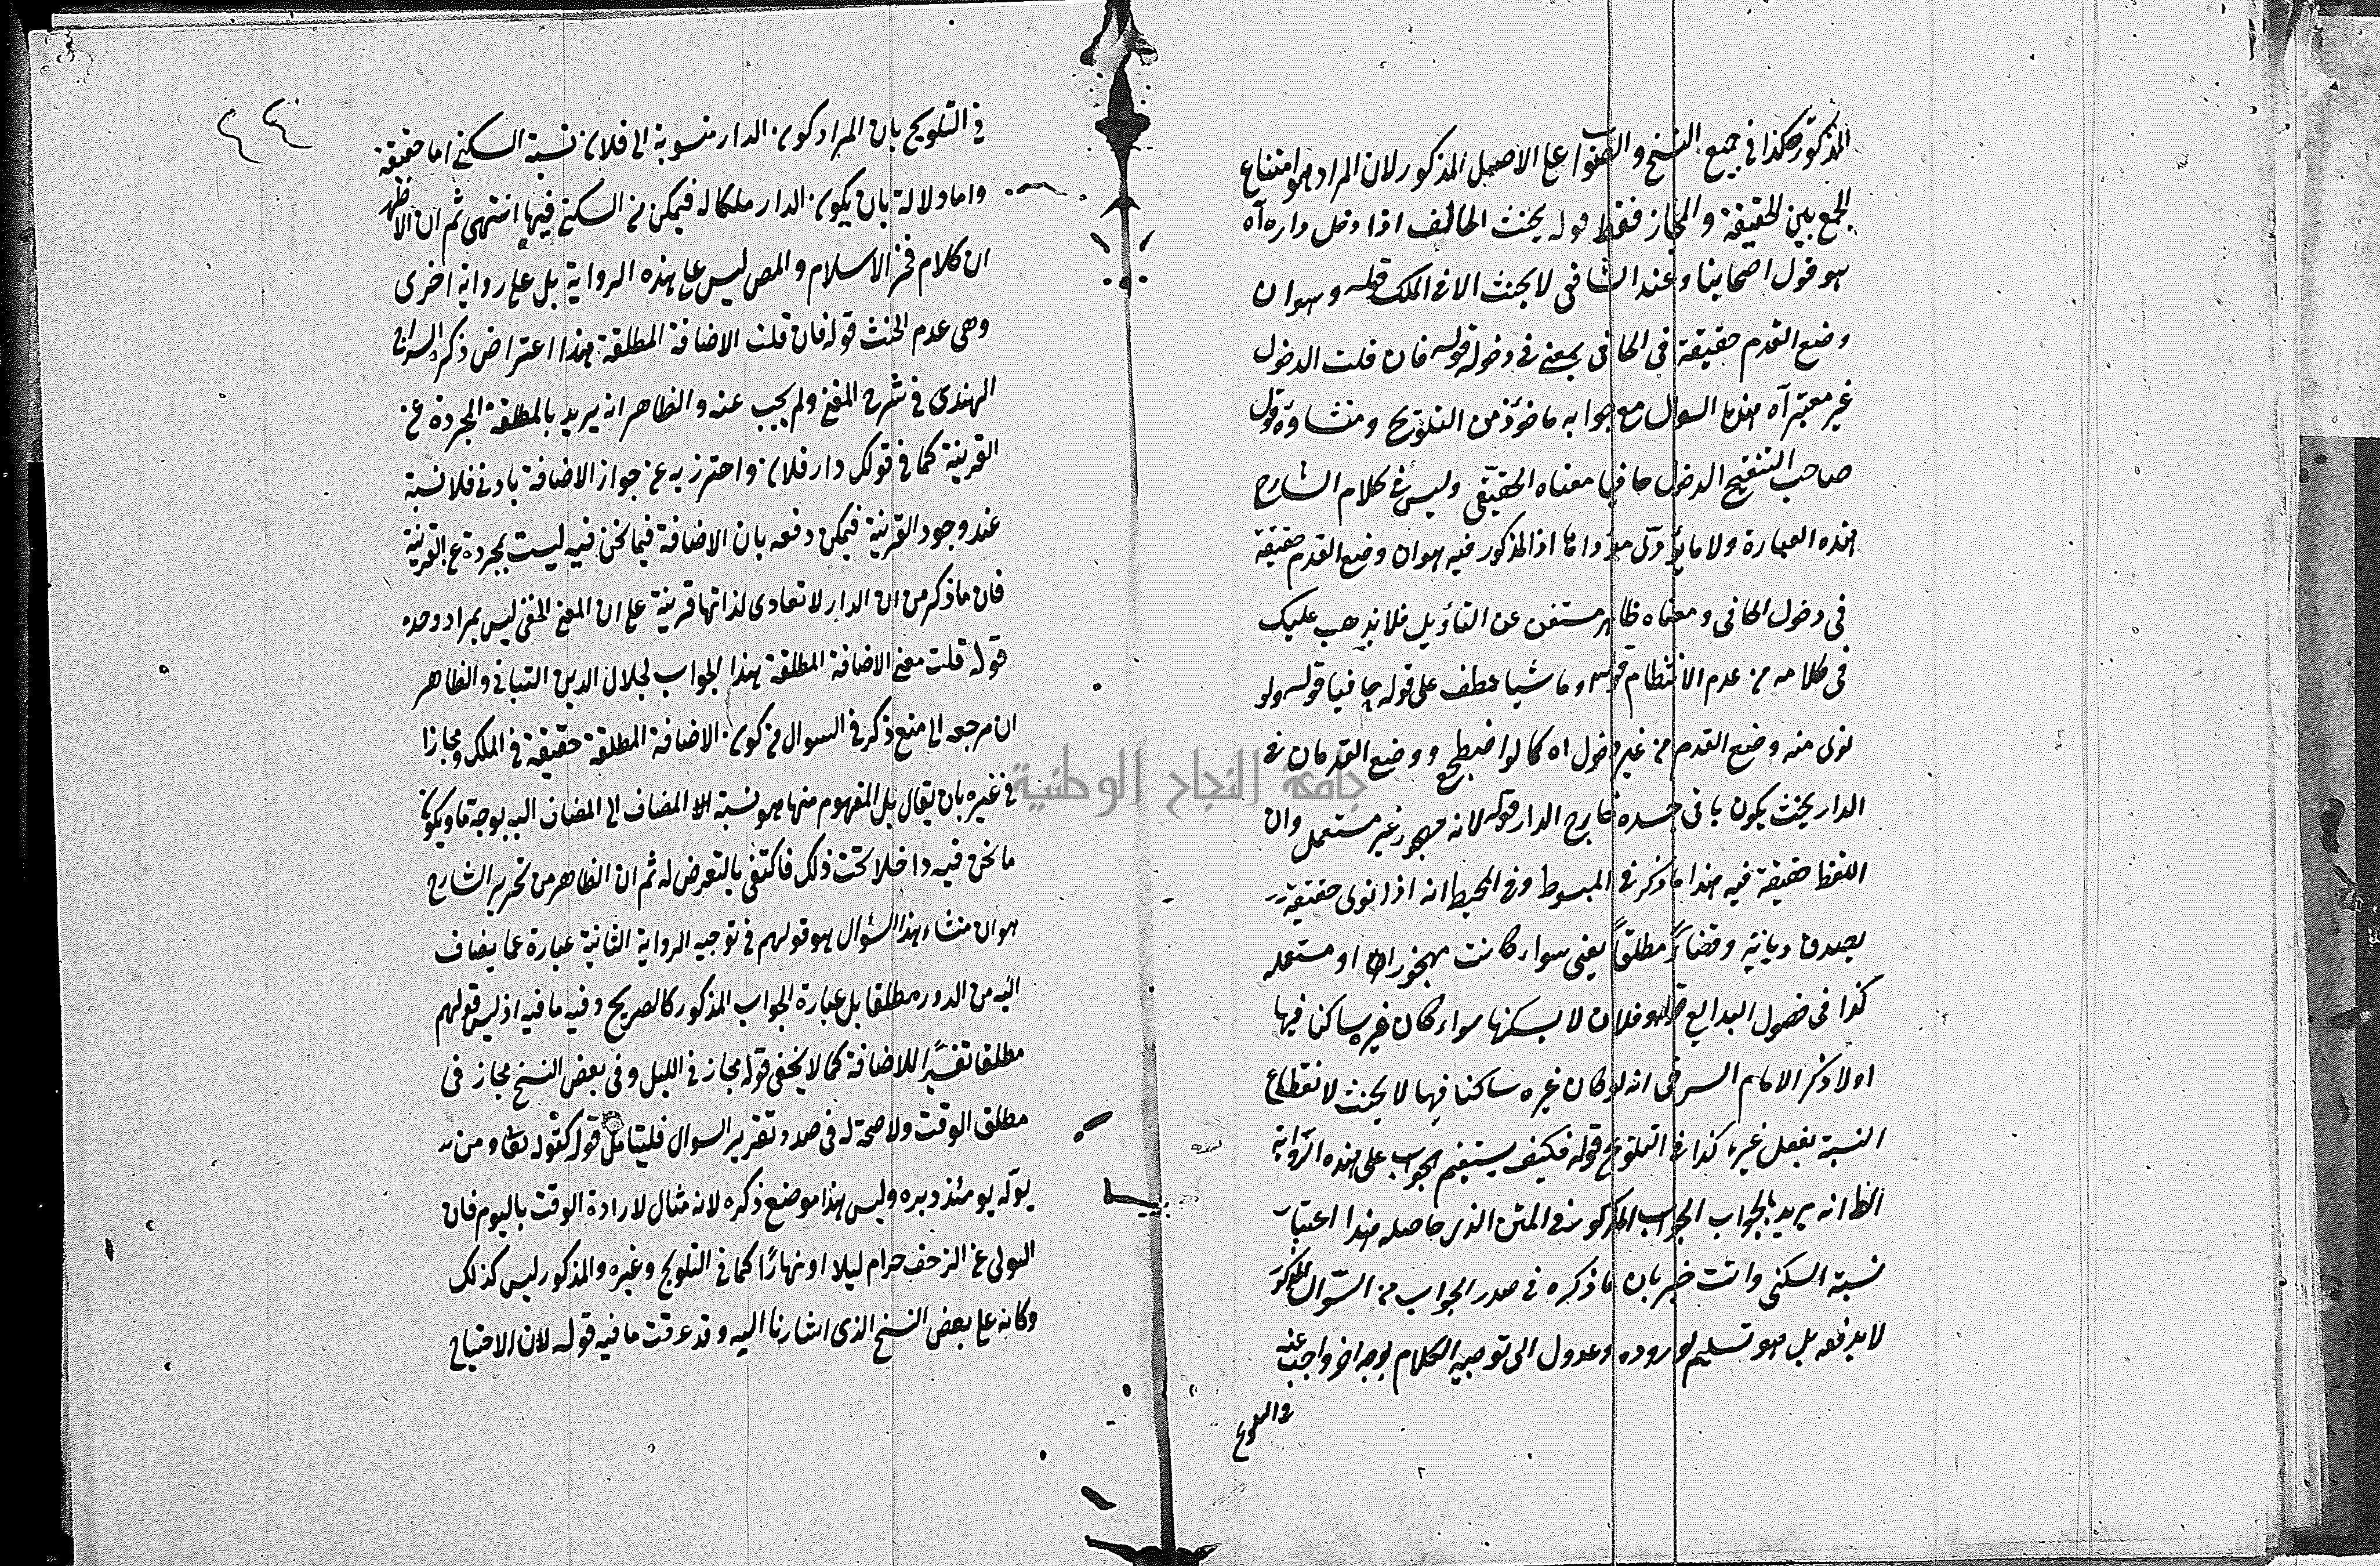 المذكور هكذا في جميع النسخ والصواب على الاصل المذكور لان المراد هو امتناع
الجمع بين الحقيقة والمجاز فقط قوله يحنث الحالف اذا دخل داره آه
هو قول اصحابنا وعند الشافعى لا يحنث الا في الملك قوله وهو ان
وضع القدم حقيقة فى الحافى بمعنى في دخوله قوله فان قلت الدخول
غير معتبر آه هذا السوال مع جوابه ماخوذ من التلويح ومنشاؤه قول
صاحب التنقيح الدخول حافيا معناه الحقيقى وليس في كلام الشارح
هذه العبارة ولا ما يؤدى مؤداها اذ المذكور فيه هو ان وضع القدم حقيقة
فى دخول الحافى ومعناه ظاهر مستغن عن التأويل فلا يذهب عليك
فى كلامه من عدم الانتظام قوله وماشيا عطف على قوله حافيا قوله ولو
نوى منه وضع القدم من غير دخول اه كما لو اضطجع ووضع القدمان في
الدار بحيث يكون باقى جسده خارج الدار قوله لانه مهجور غير مستعمل وان
اللفظ حقيقة فيه هذا ما ذكر في المبسوط وفي المحيط انه اذا نوى حقيقته
يصدق ديانة وقضاءً مطلقاً يعنى سواء كانت مهجورة او مستعمله
كذا فى فصول البدايع قوله وفلان لا يسكنها سواء كان غيره ساكنا فيها
اولا ذكر الامام السرخسى انه لو كان غيره ساكنا فيها لا يحنث لانقطاع
النسبة بفعل غيره كذا في التلويح قوله فكيف يستقيم الجواب على هذه الرواية
الظ انه يريد بالجواب الجواب المذكور في المتن الذى حاصله هذا اعتبار
نسبة السكنى وانت خبير بان ما ذكره في صدر الجواب من السؤال المذكور
لا يدفعه بل هو تسليم لوروده وعدول الى توجيه الكلام بوجه اخر واجيب عنه
في التلويح
٤٤
في التلويح بان المراد كون الدار منسوبة الى فلان نسبة السكنى اما حقيقة
واما دلالة بان يكون الدار ملكا له فيمكن من السكنى فيها انتهى ثم ان الاظهر
ان كلام فخر الاسلام والمص ليس على هذه الرواية بل على رواية اخرى
وهى عدم الحنث قوله فان قلت الاضافة المطلقة هذا اعتراض ذكره السراج
الهندى فى شرح المغنى ولم يجب عنه والظاهر انه يريد بالمطلقة المجردة عن
القرينة كما في قولك دار فلان واحترز به عن جواز الاضافة بادنى ملابسة
عند وجود القرينة فيمكن دفعه بان الاضافة فيما نحن فيه ليست بمجردة عن القرينة
فان ما ذكر من ان الدار لا تعادى لذاتها قرينة على ان المعنى الحقيقى ليس بمراد وحده
قوله قلت معنى الاضافة المطلقة هذا الجواب لجلال الدين التبانى والظاهر
ان مرجعه الى منع ذكر في السوال من كون الاضافة المطلقة حقيقة في الملك ومجازا
في غيره بان يقال بل المفهوم منها هو نسبة المضاف الى المضاف اليه بوجه ما ويكون
ما نحن فيه داخلا تحت ذلك فاكتفى بالتعرض له ثم ان الظاهر من تحرير الشارح
هو ان منشاء هذا السؤال هو قولهم في توجيه الرواية الثانية عبارة عما يضاف
اليه من الدور مطلقا بل عبارة الجواب المذكور كالصريح وفيه ما فيه اذ ليس قولهم
مطلقا تفسيرًا للاضافة كما لا يخفى قوله مجاز في الليل وفي بعض النسخ مجاز فى
مطلق الوقت ولا صحة له فى صدد تقرير السوال فليتامل قوله كقوله تعا ومن
يولّه يومئذ دبره وليس هذا موضع ذكره لانه مثال لارادة الوقت باليوم فان
التولى عن الزحف حرام ليلا او نهارًا كما في التلويح وغيره والمذكور ليس كذلك
وكانه على بعض النسخ الذى اشرنا اليه وقد عرفت ما فيه قوله لان الاحتياج
جامعة النجاح الوطنية